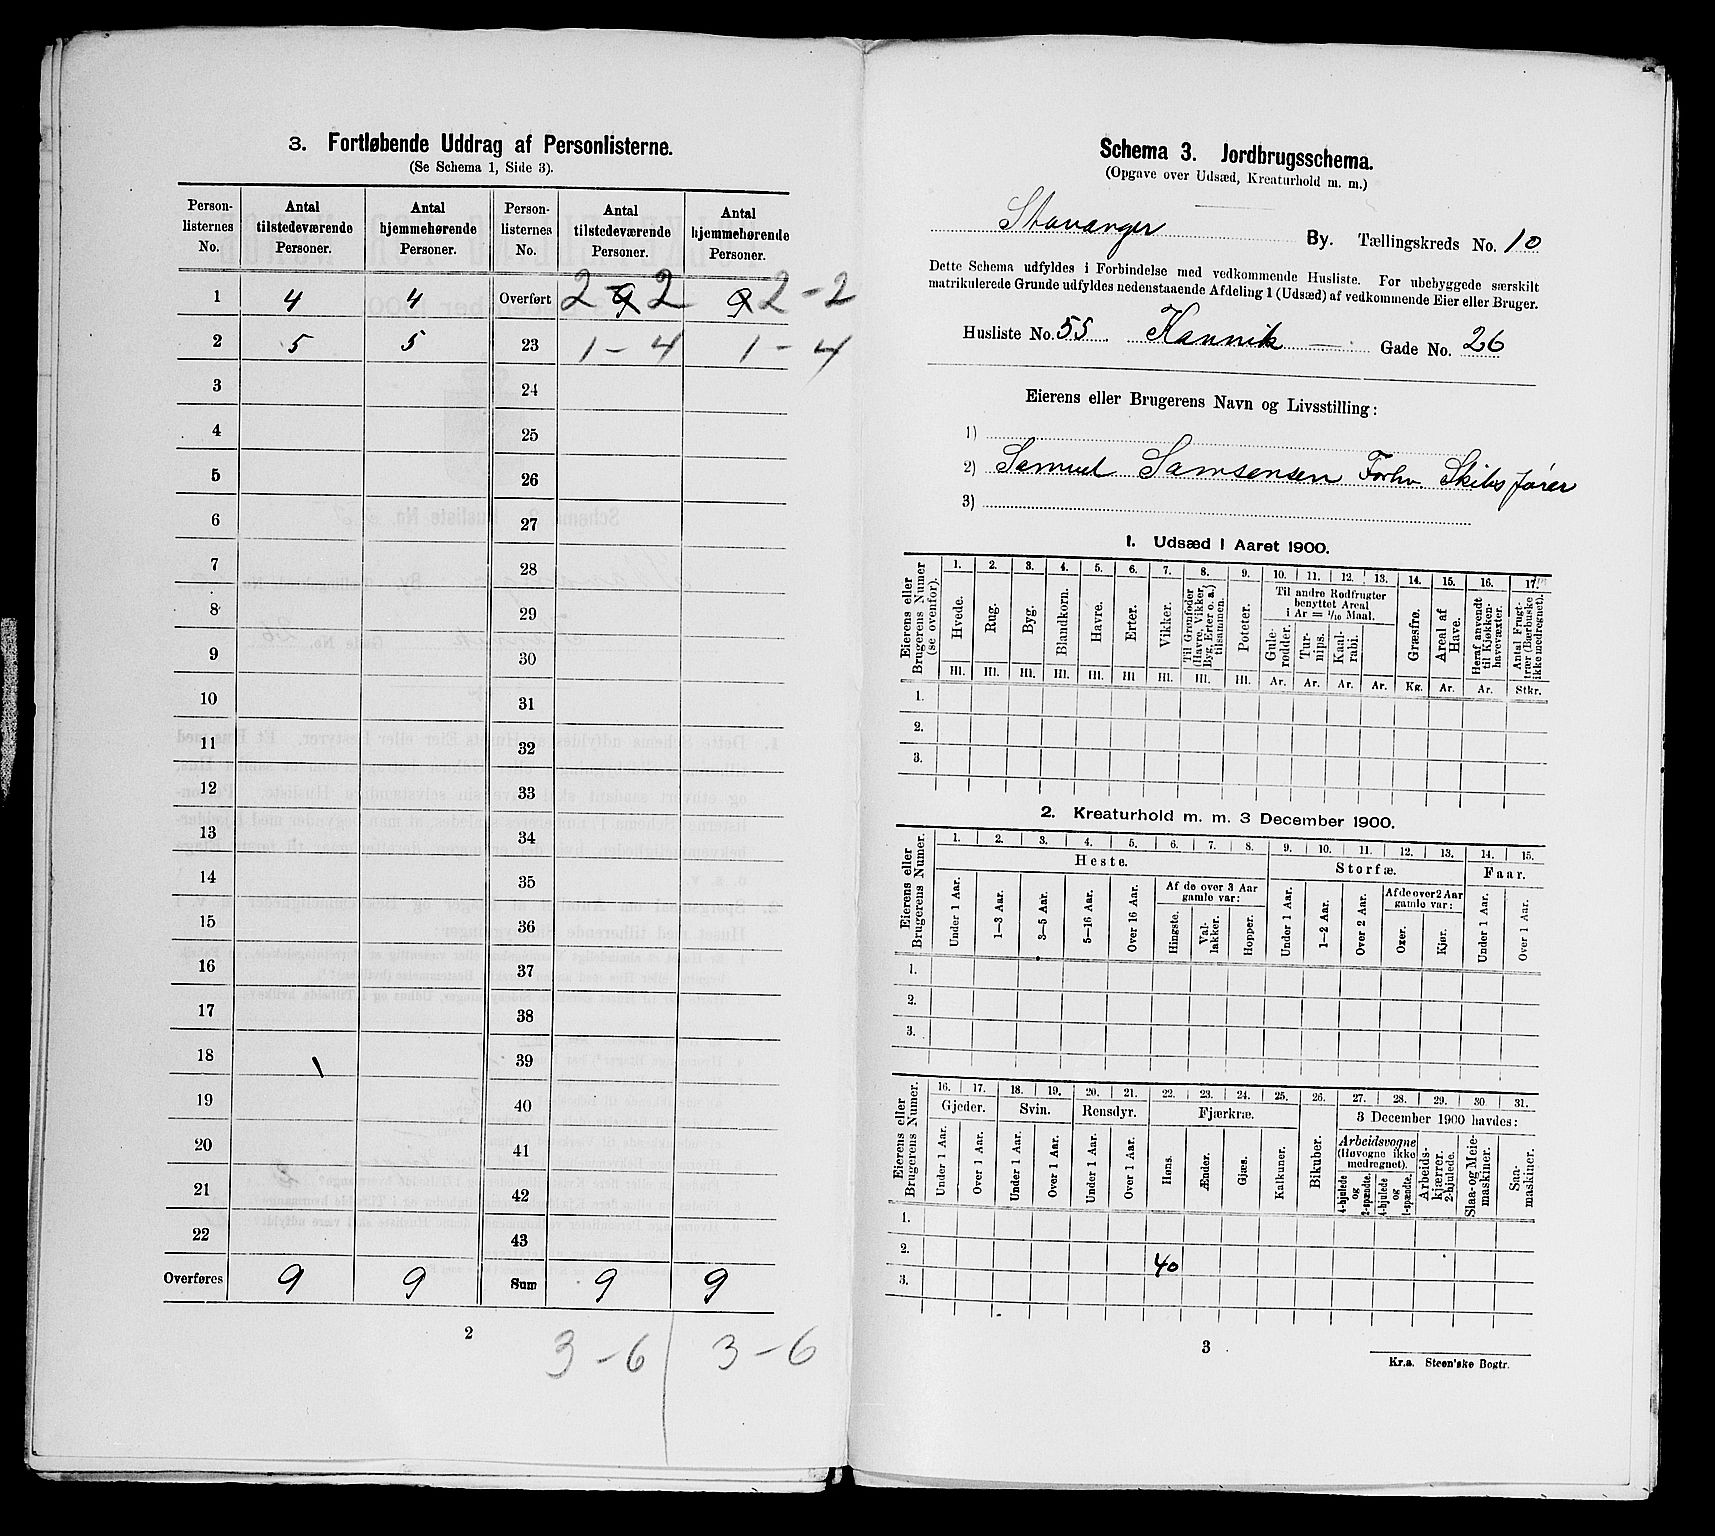 3. Fortløbende Uddrag af Personlisterne.
(Se Schema 1, Side 3).
Person-listernes No. Antal tilstedeværende Personer. Antal hjemmehørende Personer. Person-listernes No. Antal tilstedeværende Personer. Antal hjemmehørende Personer.
1 4 4 Overført 2-2 9 9 2-2
2 5 5 23 1-4 1-4
3 24
4 25
5 26
6 27
7 28
8 29
9 30
10 31
11 32
12 33
13 34
14 35
15 36
16 37
17 38
18 39
19 40
20 41
21 42
22 43
Overføres 9 9 Sum 9 9
2
3-6 3-6
Schema 3. Jordbrugsschema.
(Opgave over Udsæd, Kreaturhold m. m.)
Stavanger By. Tællingskreds No. 10
Dette Schema udfyldes i Forbindelse med vedkommende Husliste. For ubebyggede særskilt
matrikulerede Grunde udfyldes nedenstaaende Afdeling 1 (Udsæd) af vedkommende Eier eller Bruger.
Husliste No. 55. Kannik — Gade No. 26
Eierens eller Brugerens Navn og Livsstilling:
1)
2) Samuel Samsensen Forhv. Skibsfører
3)
1. Udsæd i Aaret 1900.
Eierens eller Brugerens Numer (se ovenfor).
1. 2. 3. 4. 5. 6. 7. 8. 9. 10. 11. 12. 13. 14. 15. 16. 17.
Hvede. Rug. Byg. Blandkorn. Havre. Erter. Vikker. Til Grønfoder (Havre, Vikker, Byg, Erter o. a.) tilsammen. Poteter.
Til andre Rodfrugter benyttet Areal i Ar = 1/10 Maal.
Gule-rødder. Tur-nips. Kaal-rabi.
Græsfrø. Areal af Have. Heraf anvendt til Kjøkken-havevæxter. Antal Frugt-trær (Bærbuske ikke medregnet).
Hl. Hl. Hl. Hl. Hl. Hl. Hl. Hl. Hl. Ar. Ar. Ar. Ar. Kg. Ar. Ar. Stkr.
1.
2.
3.
2. Kreaturhold m. m. 3 December 1900.
Eierens eller Brugerens Numer.
1. 2. 3. 4. 5. 6. 7. 8. 9. 10. 11. 12. 13. 14. 15.
Heste. Storfæ. Faar.
Under 1 Aar. 1—3 Aar. 3—5 Aar. 5—16 Aar. Over 16 Aar.
Af de over 3 Aar gamle var:
Hingste. Val-lakker. Hopper.
Under 1 Aar. 1—2 Aar. Over 2 Aar.
Af de over 2 Aar gamle var:
Oxer. Kjør.
Under 1 Aar. Over 1 Aar.
1.
2.
3.
Eierens eller Brugerens Numer.
16. 17. 18. 19. 20. 21. 22. 23. 24. 25. 26. 27. 28. 29. 30 31.
Gjeder. Svin. Rensdyr. Fjærkræ. Bikuber. 3 December 1900 havdes:
Under 1 Aar. Over 1 Aar. Under 1 Aar. Over 1 Aar. Under 1 Aar. Over 1 Aar.
Høns. Ænder. Gjæs. Kalkuner.
Arbeidsvogne (Høvogne ikke medregnet).
4-hjulede og 2-spændte, 4-hjulede og 1-spændte,
Arbeids-kjærrer. 2-hjulede. Slaa- og Meie-maskiner. Saa-maskiner.
1.
2. 40
3.
3
Kr.a. Steen'ske Bogtr.